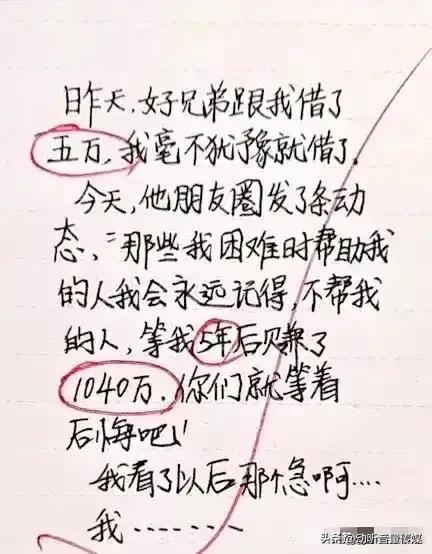 昨天,好兄弟跟我借了
五万,我毫不犹豫就借了。
今天,他朋友圈发了条动
态,:"那些我困难时帮助我
的人我会永远记得,不帮我
的人,等我5年后赚了
1040万,你们就等着
后悔吧!"
我看了以后那个急啊....
我.......
头条@动听音量传媒